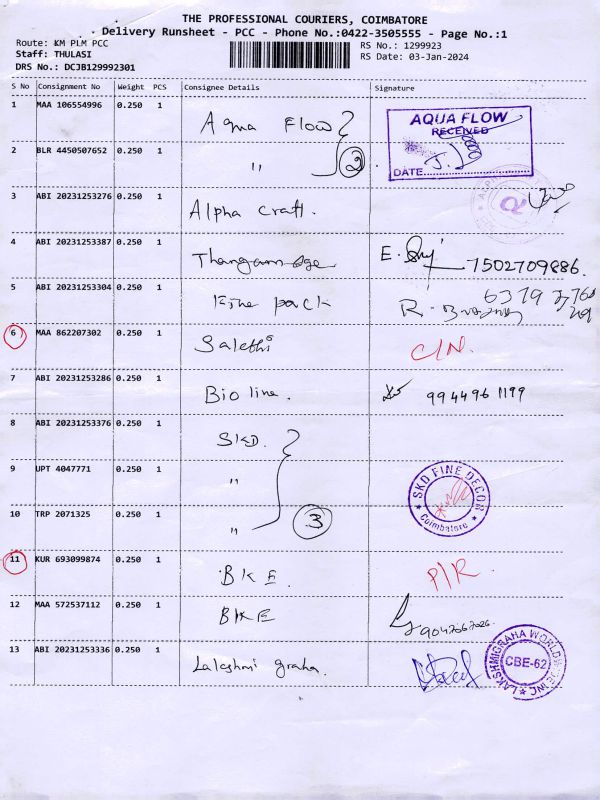 THE PROFESSIONAL COURIERS, COIMBATORE
Delivery Runsheet - PCC - Phone No.:0422-3505555 - Page No.:1
Route: KM PLM PCC
RS No.: 1299923
Staff: THULASI
RS Date: 03-Jan-2024
DRS No.: DCJB129992301
S No Consignment No Weight PCS Consignee Details Signature
1 MAA 106554996 0.250 1 Aqua Flow
AQUA FLOW
RECEIVED
DATE
2 BLR 4450507652 0.250 1 " 2
3 ABI 20231253276 0.250 1 Alpha craft.
4 ABI 20231253387 0.250 1 Thangam age E. 7502709886.
5 ABI 20231253304 0.250 1 Fine pack R. 6379
6 MAA 862207302 0.250 1 Salethi C/N.
7 ABI 20231253286 0.250 1 Bio line. 9944961199
8 ABI 20231253376 0.250 1 SKD.
9 UPT 4047771 0.250 1 "
SKD FINE DECOR
Coimbatore
10 TRP 2071325 0.250 1 " 3
11 KUR 693099874 0.250 1 BKE. P/R.
12 MAA 572537112 0.250 1 BKE
13 ABI 20231253336 0.250 1 Lakshmi graha.
LAKSHMIGRAHA WORLDWIDE INC
CBE-62